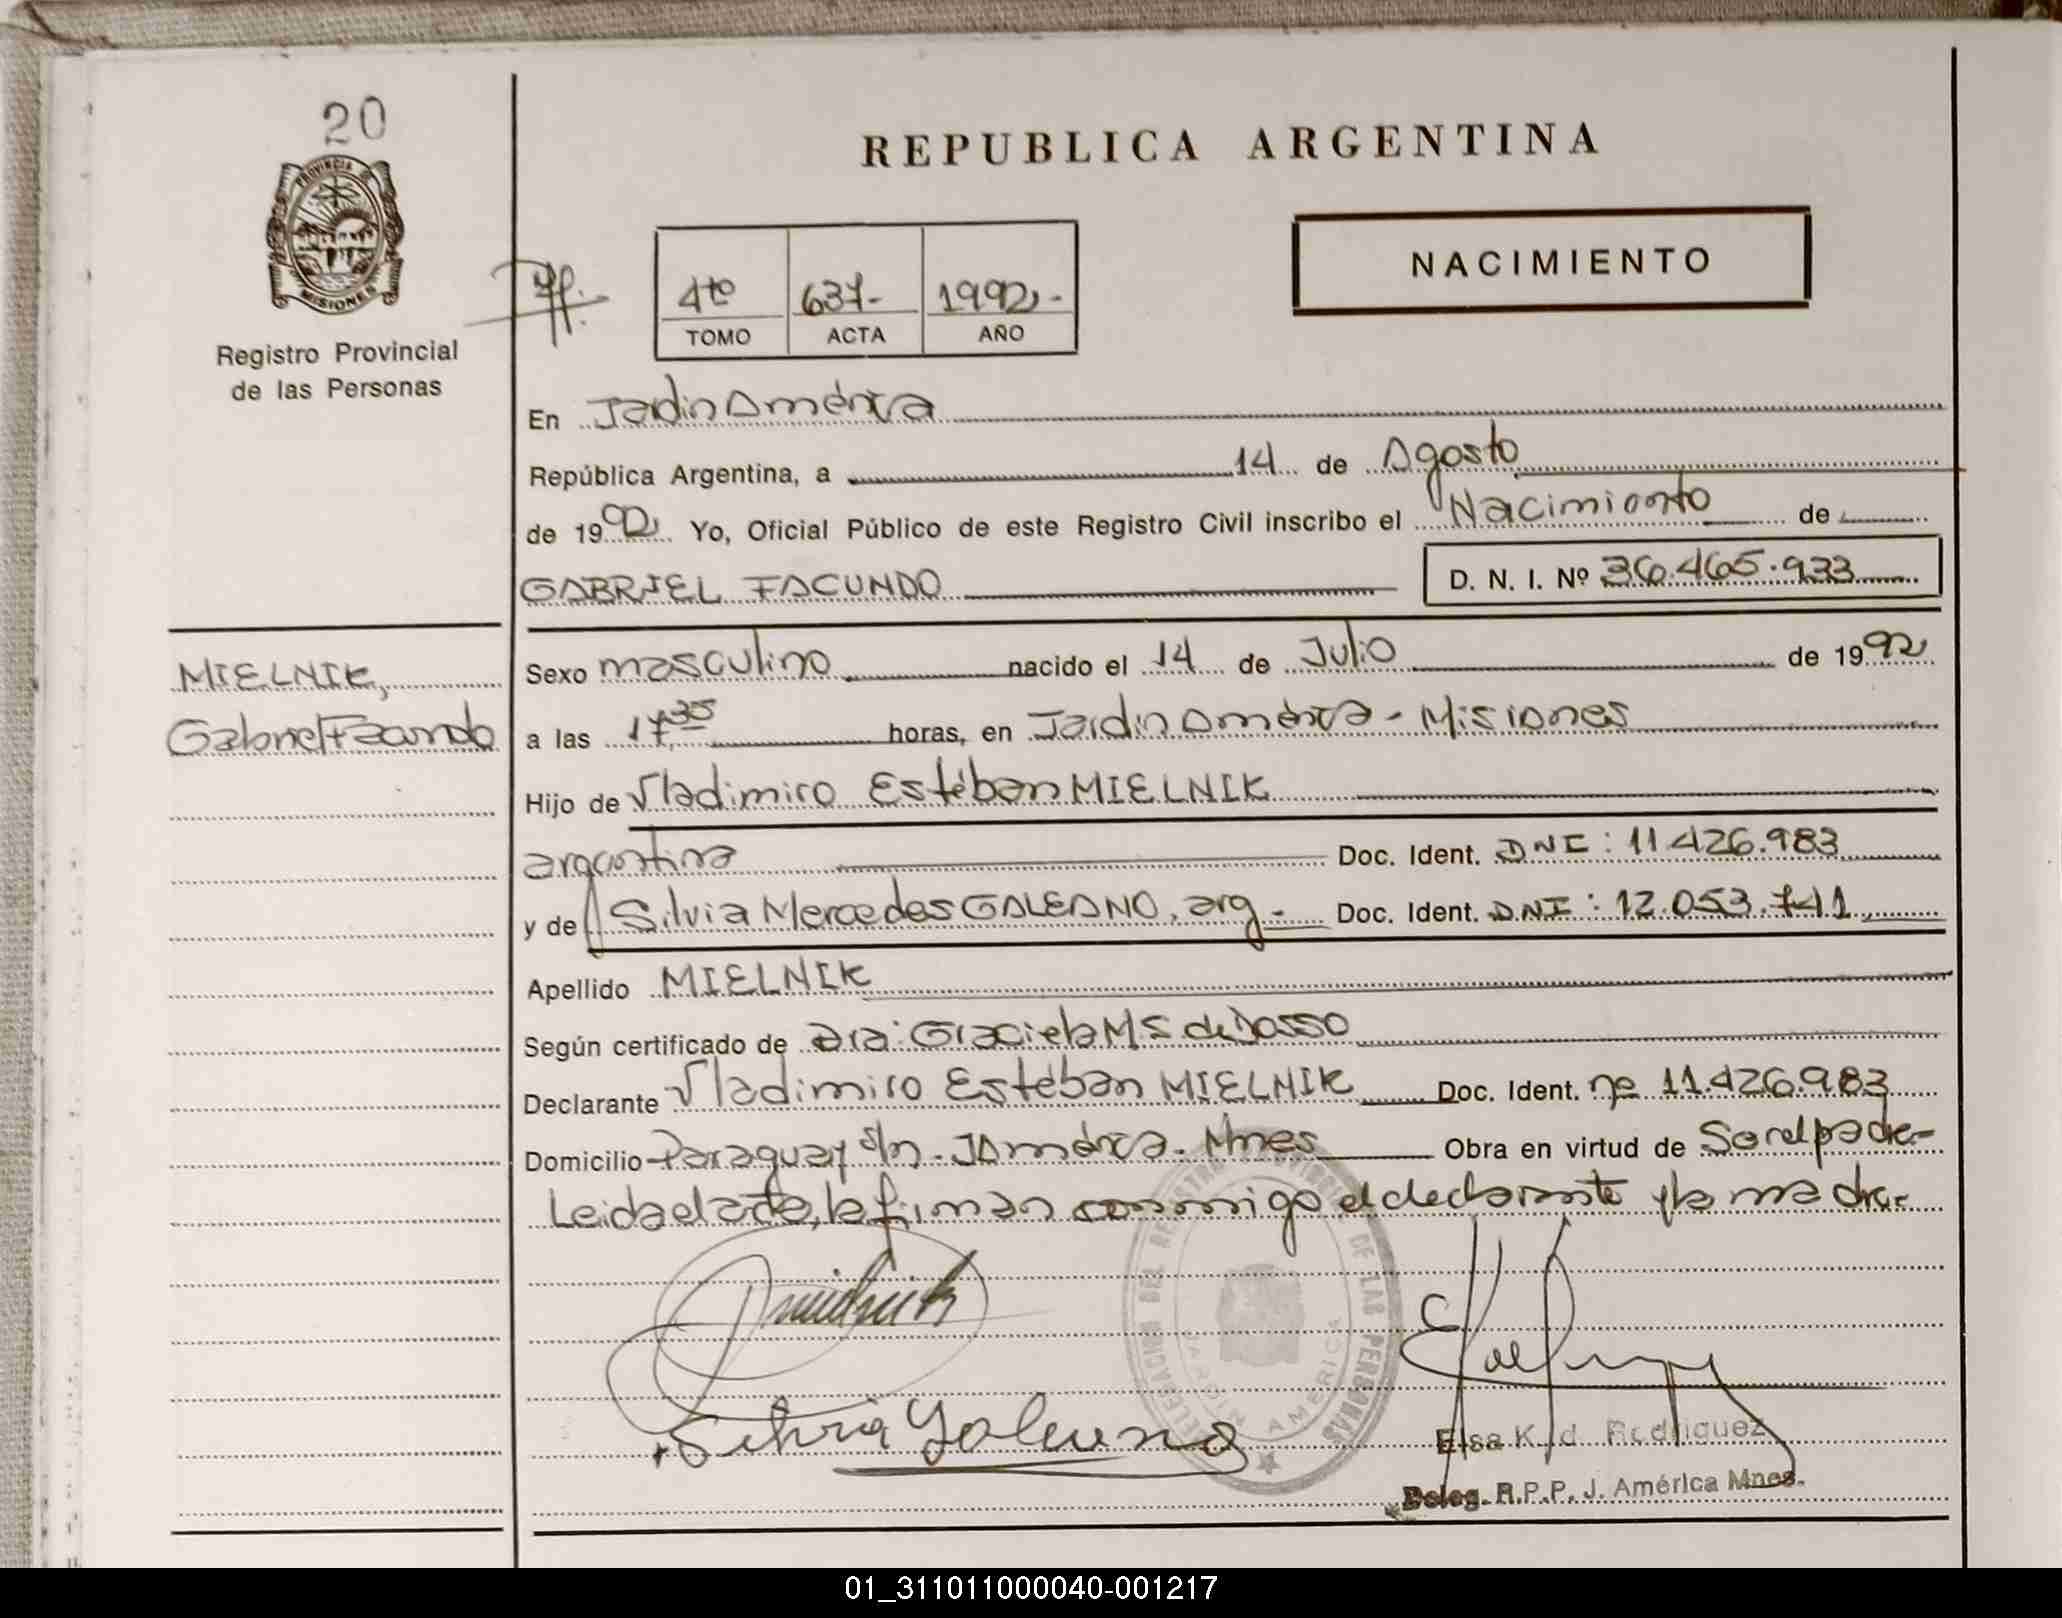 20
PROVINCIA DE
MISIONES
Registro Provincial
de las Personas
REPUBLICA ARGENTINA
NACIMIENTO
4to 637- 1992,-
TOMO ACTA AÑO
En Jardin América
República Argentina, a 14 de Agosto
de 1992, Yo, Oficial Público de este Registro Civil inscribo el Nacimiento de
GABRIEL FACUNDO D. N. I. Nº 36.465.933
MIELNIK,
Gabriel Facundo
Sexo masculino nacido el 14 de Julio de 1992
a las 17,35 horas, en Jardin América - Misiones
Hijo de Vladimiro Estéban MIELNIK
argentina Doc. Ident. DNI: 11.426.983
y de Silvia Mercedes GALEANO, arg.- Doc. Ident. DNI: 12.053.741
Apellido MIELNIK
Según certificado de Dra: Graciela M S. de Dasso
Declarante Vladimiro Estéban MIELNIK Doc. Ident. nº 11.426.983
Domicilio Paraguay s/n - J América - Mnes Obra en virtud de Ser el padre-
Leida el acta, la firman conmigo el declarante y la madre
Silvia Galeano
DELEGACION DEL REGISTRO DE LAS PERSONAS
JARDIN AMERICA
Elsa K. d. Rodriguez
Deleg. R.P.P. J. América Mnes.
01_311011000040-001217